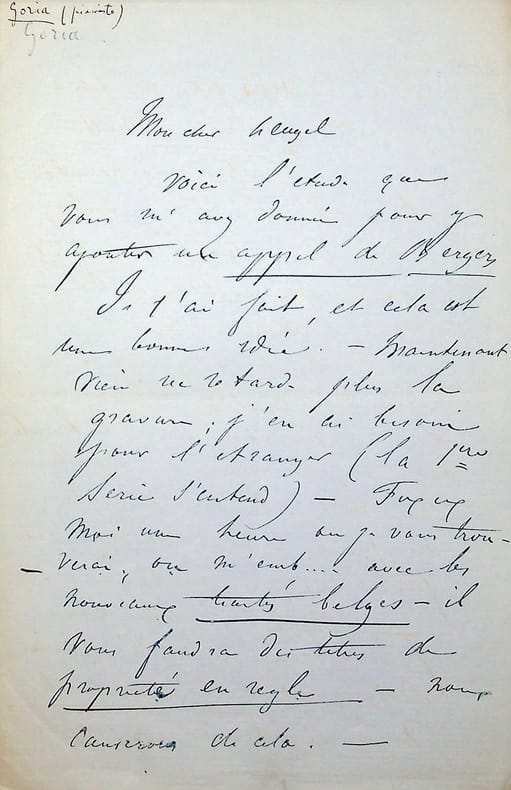 Goria (pianiste)
Goria
Mon cher heugel
Voici l'etude que
vous m'avez donnée pour y
ajouter un appel de Bergers
Je l'ai fait, et cela est
une bonne idée. — Maintenant
rien ne retarde plus la
gravure, j'en ai besoin
pour l'etranger (la 1ere
Serie s'entend) — Fixez
moi une heure ou je vous trou-
verai, on m'emb.... avec les
nouveaux traités belges — il
vous faudra des titres de
propriété en regle — nous
causerons de cela. —